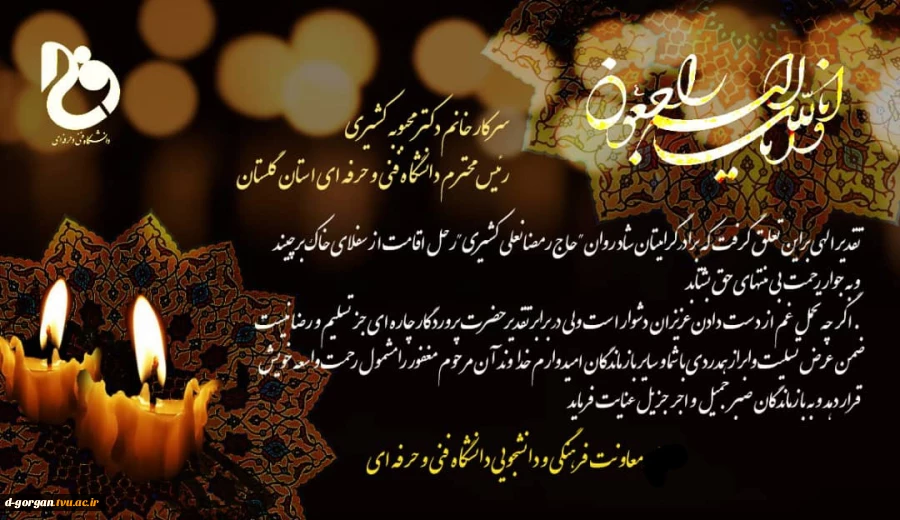 انا لله و انا الیه راجعون
دانشگاه فنی و حرفه‌ای
سرکار خانم دکتر محبوبه کشیری
رئیس محترم دانشگاه فنی و حرفه ای استان گلستان
تقدیر الهی بر این تعلق گرفت که برادر گرامیتان شادروان "حاج رمضانعلی کشیری" رحل اقامت از سفلای خاک برچیند
و به جوار رحمت بی منتهای حق بشتابد
. اگر چه تحمل غم از دست دادن عزیزان دشوار است ولی در برابر تقدیر حضرت پروردگار چاره ای جز تسلیم و رضا نیست
ضمن عرض تسلیت و ابراز همدردی با شما و سایر بازماندگان امیدوارم خداوند آن مرحوم مغفور را مشمول رحمت واسعه خویش
قرار دهد و به بازماندگان صبر جمیل و اجر جزیل عنایت فرماید
معاونت فرهنگی و دانشجویی دانشگاه فنی و حرفه ای
d-gorgan.tvu.ac.ir